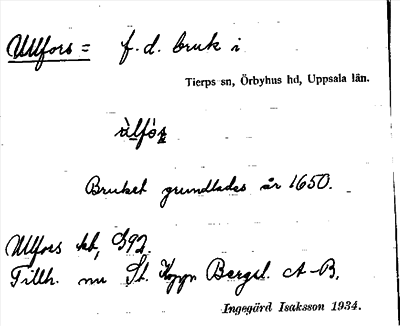 Ullfors = f. d. bruk i
Tierps sn, Örbyhus hd, Uppsala län.
Bruket grundlades år 1650.
Ullfors kb, S92.
Tillh. nu St. Kopp. Bergsl. A-B.
Ingegärd Isaksson 1934.